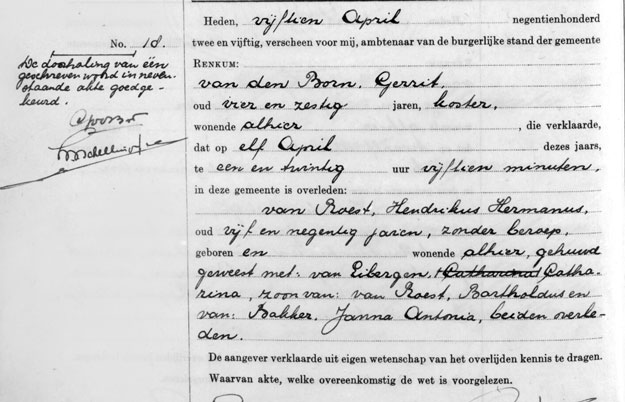 No. 18.
De doorhaling van één
geschreven woord in neven-
staande akte goedge-
keurd.
Heden, vijftien April negentienhonderd
twee en vijftig, verscheen voor mij, ambtenaar van de burgerlijke stand der gemeente
RENKUM:
van den Born, Gerrit,
oud vier en zestig jaren, koster,
wonende alhier, die verklaarde,
dat op elf April dezes jaars,
te een en twintig uur vijftien minuten,
in deze gemeente is overleden:
van Roest, Hendrikus Hermanus,
oud vijf en negentig jaren, zonder beroep,
geboren en wonende alhier, gehuwd
geweest met: van Eibergen, Catharina Catha-
rina, zoon van: van Roest, Bartholdus en
van: Bakker, Janna Antonia, beiden overle-
den.
De aangever verklaarde uit eigen wetenschap van het overlijden kennis te dragen.
Waarvan akte, welke overeenkomstig de wet is voorgelezen.